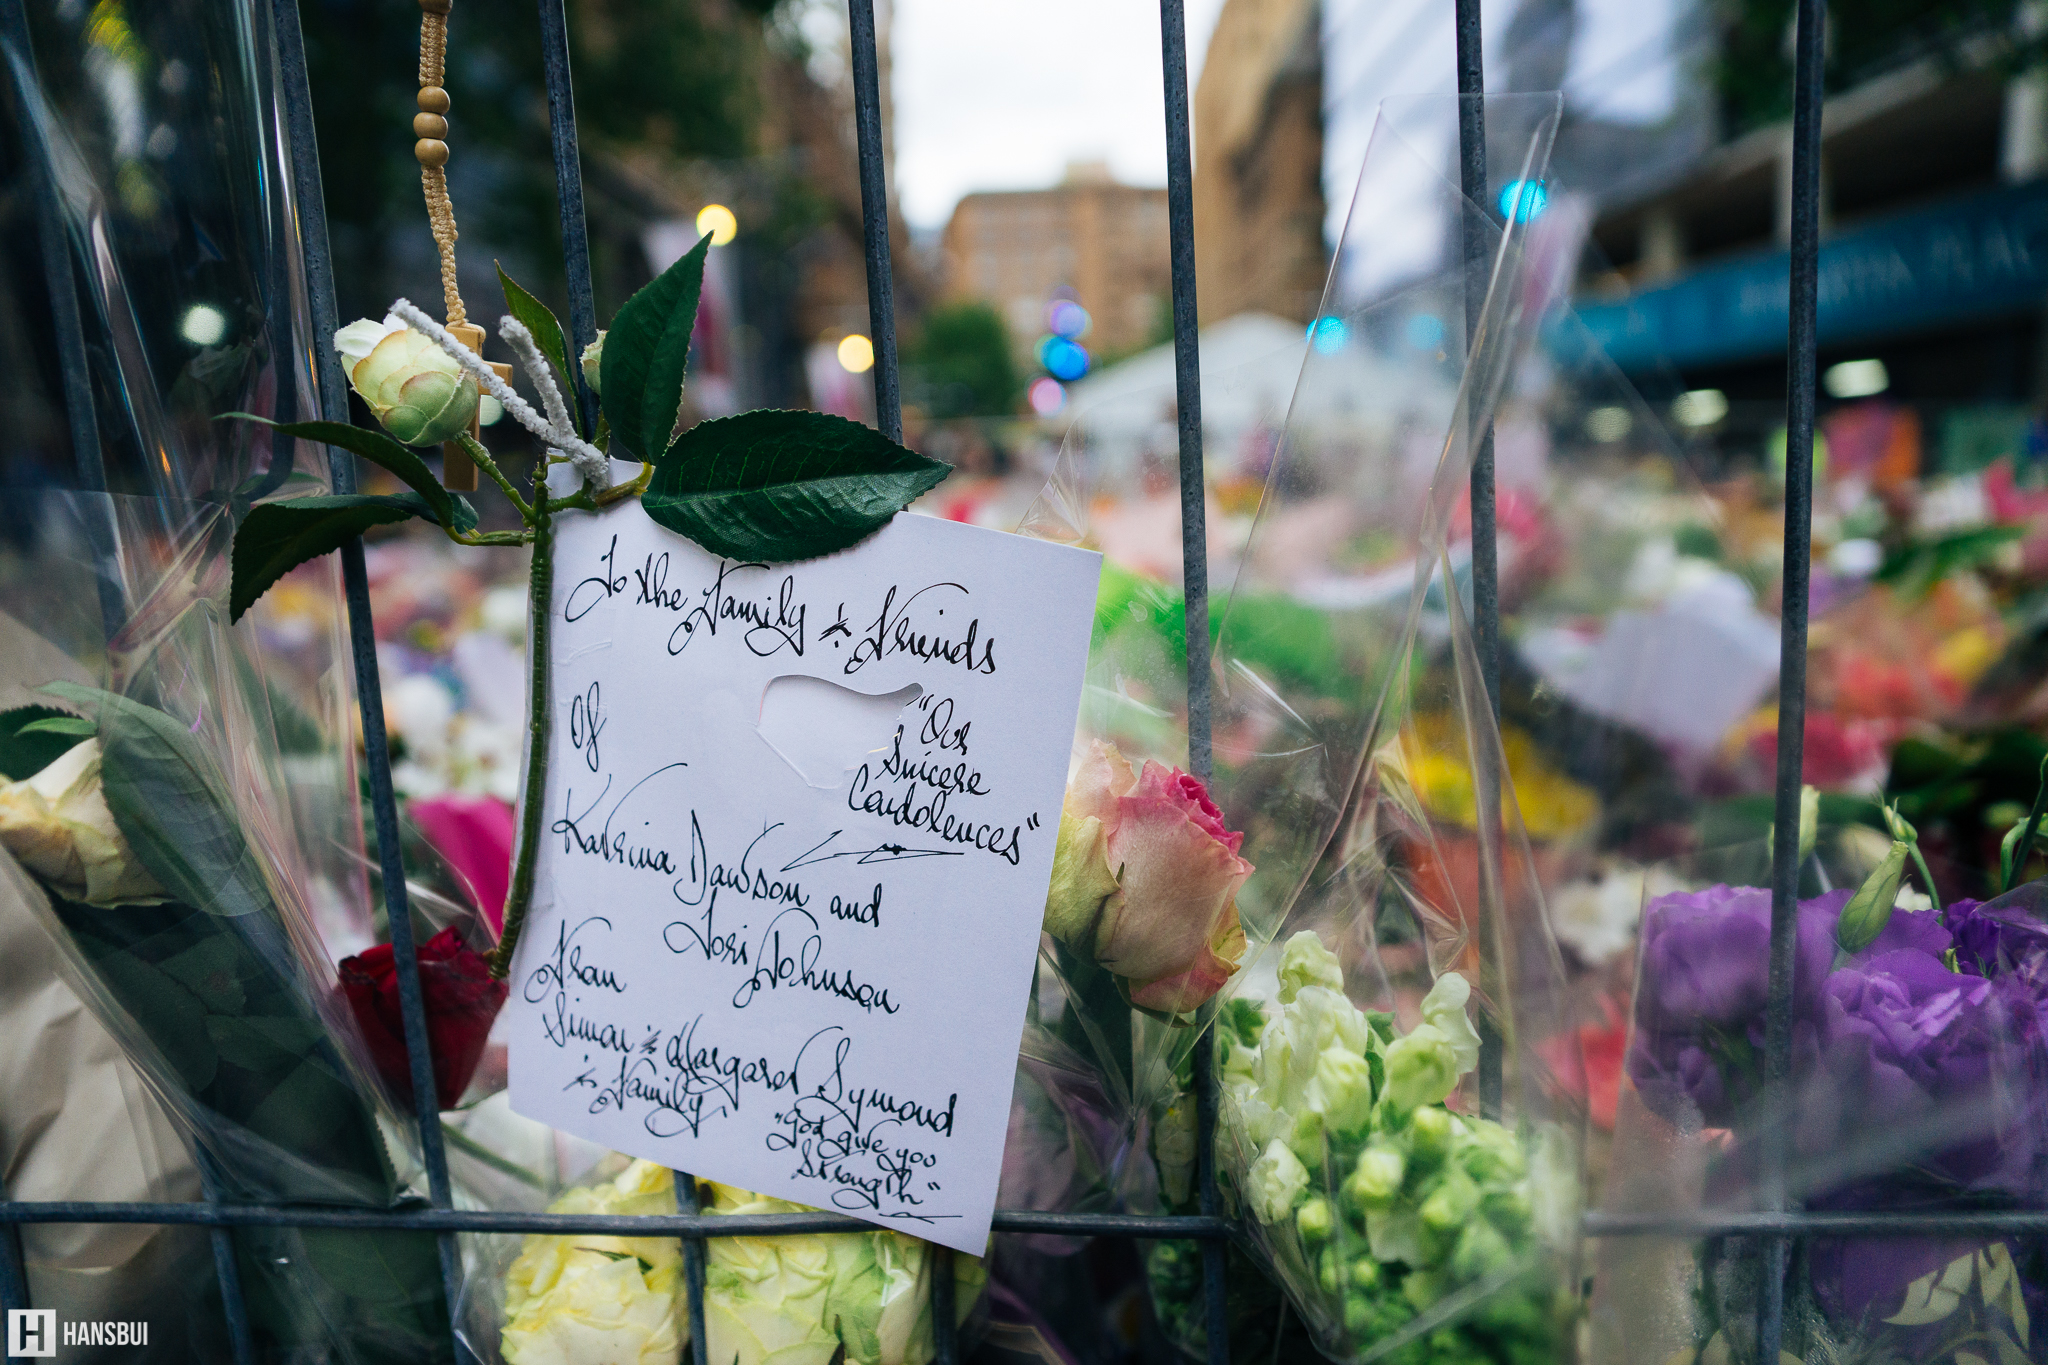 To the Family & Friends
Of
"Our
Sincere
Condolences"
Katrina Dawson and
Tori Johnson
From
Simon & Margaret Symond
& Family,
"God give you
Strength"
MARTIN PLACE
H HANSBUI